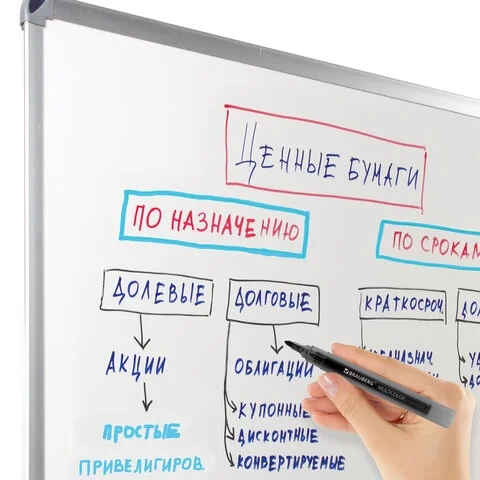 ЦЕННЫЕ БУМАГИ
ПО НАЗНАЧЕНИЮ
ПО СРОКАМ
ДОЛЕВЫЕ
ДОЛГОВЫЕ
КРАТКОСРОЧ.
АКЦИИ
ОБЛИГАЦИИ
ПРОСТЫЕ
КУПОННЫЕ
ДИСКОНТНЫЕ
ПРИВЕЛИГИРОВ.
КОНВЕРТИРУЕМЫЕ
BRAUBERG MULTICOLOR